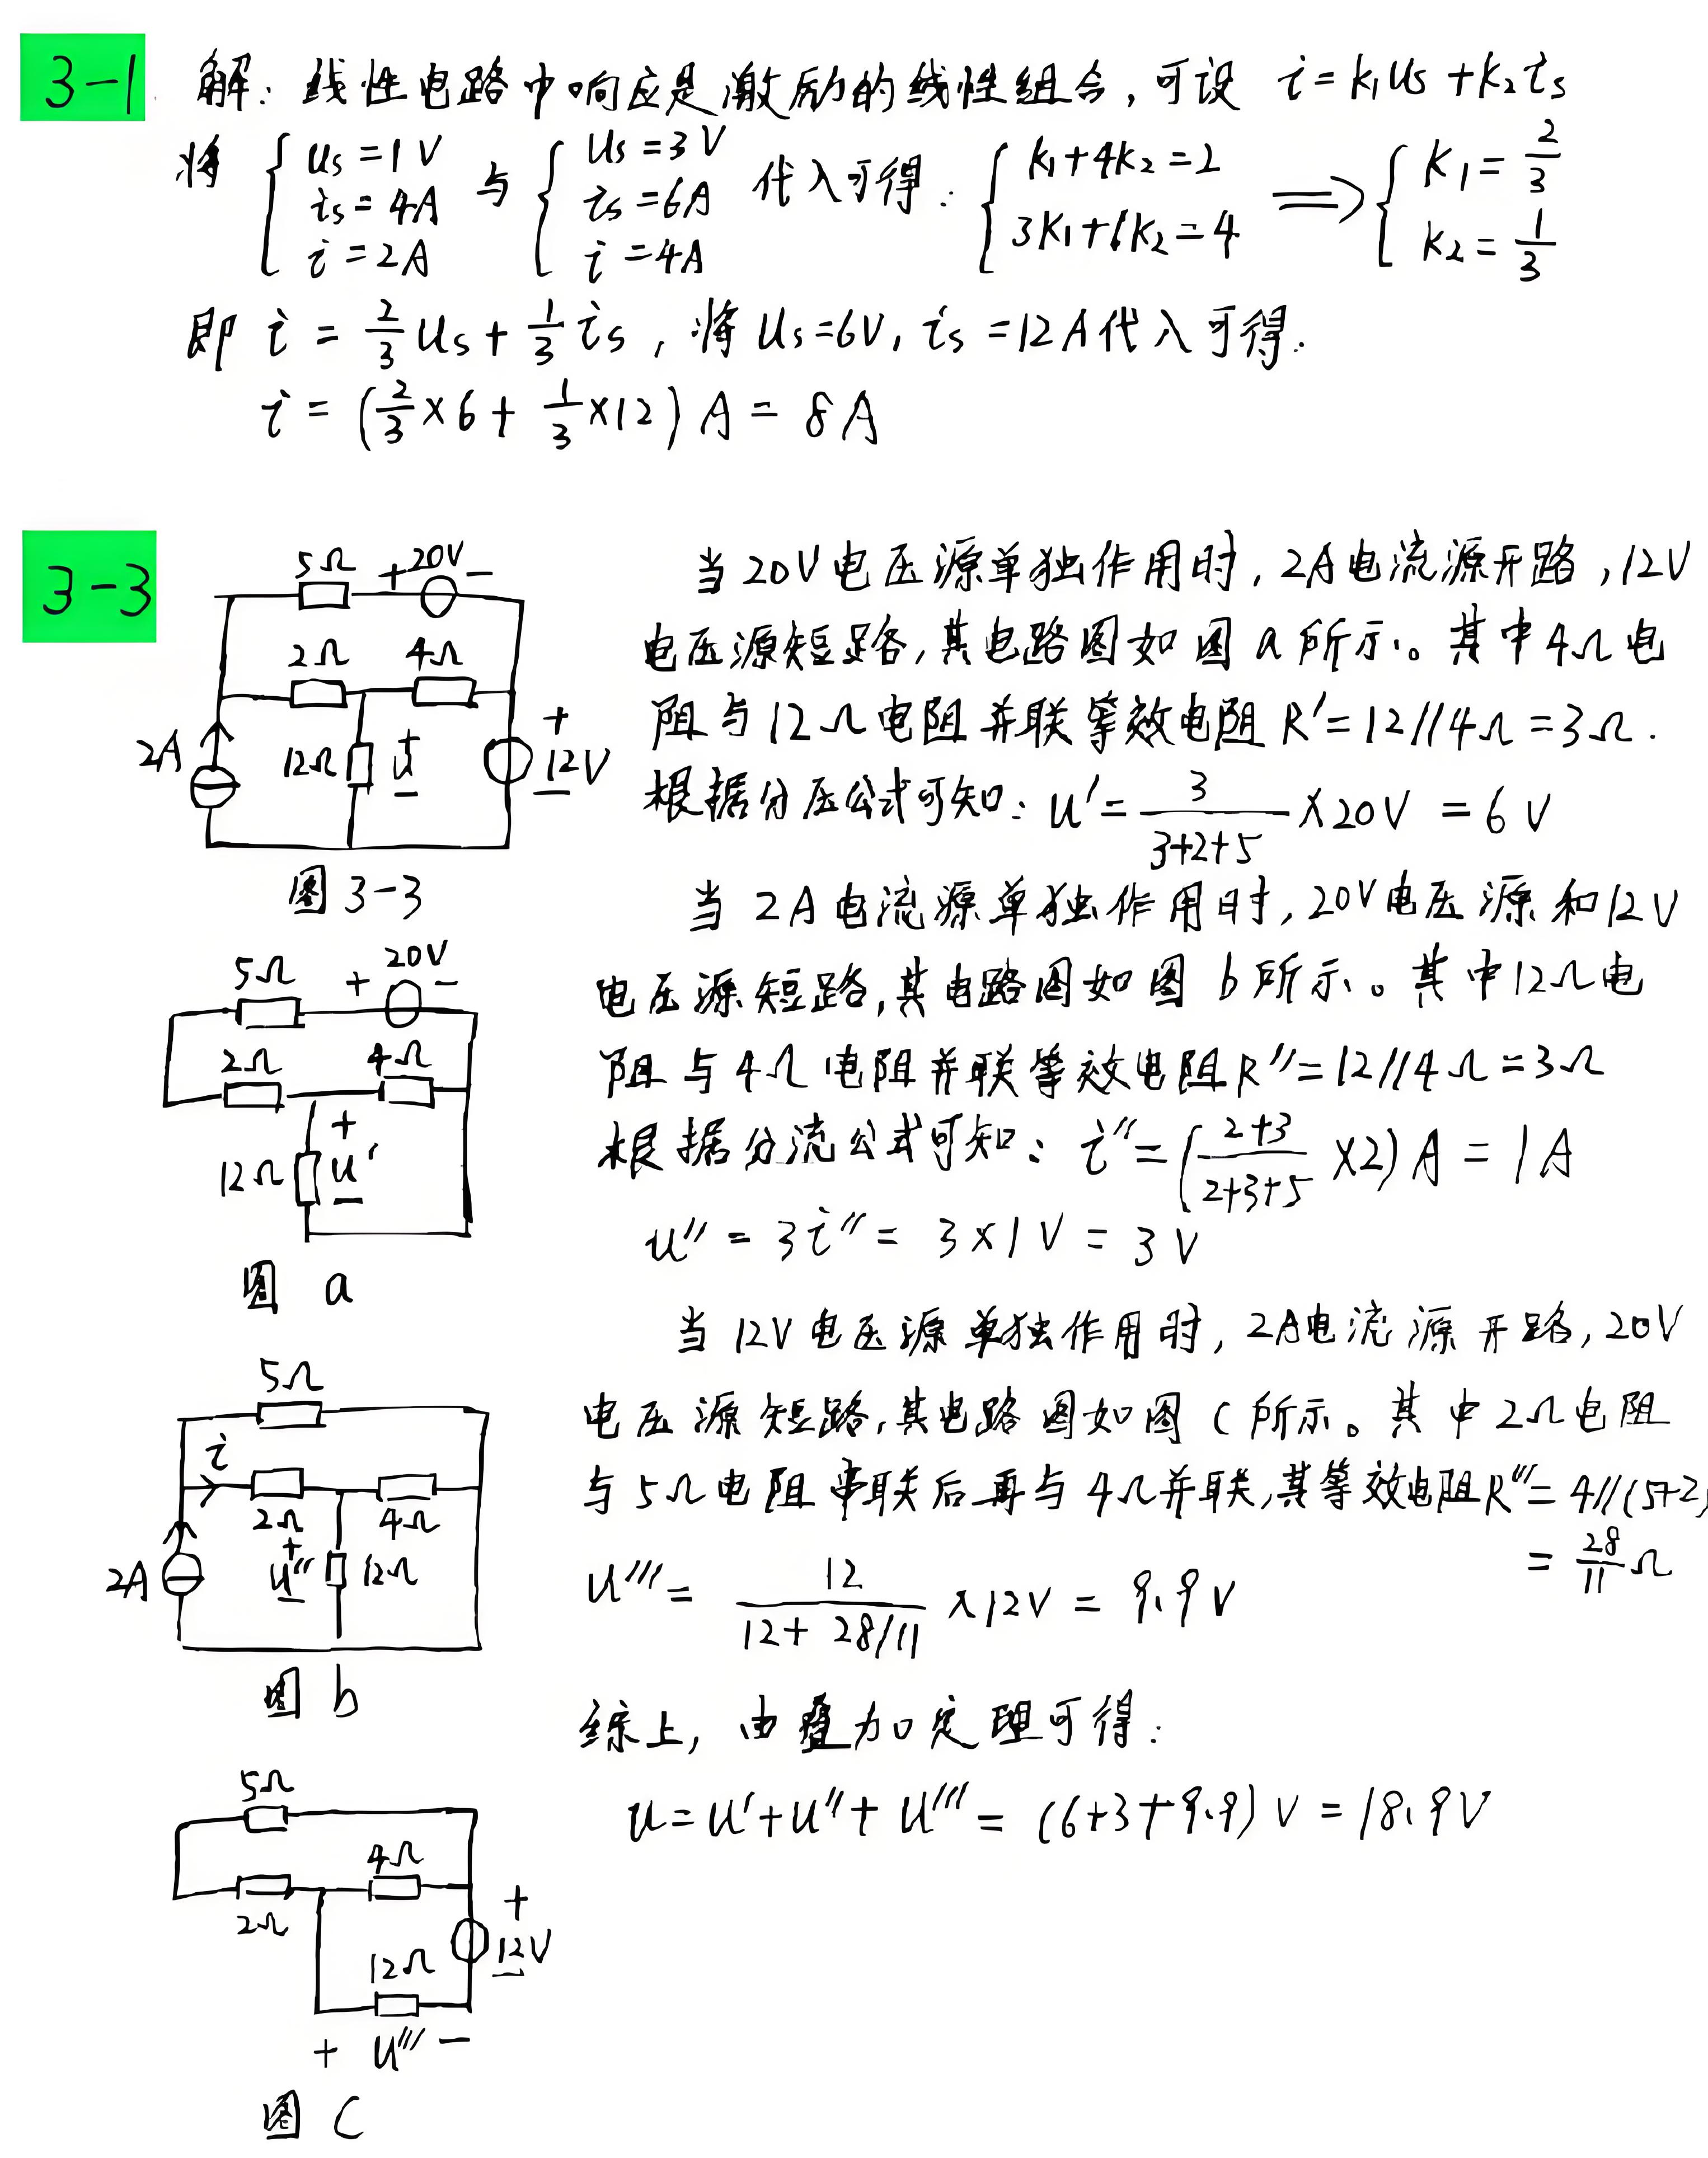 3-1 解：线性电路中响应是激励的线性组合，可设 i=k₁us+k₂is
将 { us=1V is=4A i=2A 与 { us=3V is=6A i=4A 代入可得： { k₁+4k₂=2 3k₁+6k₂=4 ⟹ { k₁=2/3 k₂=1/3
即 i = 2/3 us + 1/3 is，将 us=6V，is=12A代入可得：
i = (2/3×6 + 1/3×12) A = 8A
3-3
5Ω + 20V −
2Ω 4Ω
2A 12Ω + u − + 12V −
图 3-3
当 20V 电压源单独作用时，2A电流源开路，12V
电压源短路，其电路图如图 a 所示。其中 4Ω 电
阻与 12Ω 电阻并联等效电阻 R′=12//4Ω=3Ω.
根据分压公式可知：u′= 3/(3+2+5) ×20V = 6V
当 2A 电流源单独作用时，20V电压源和12V
电压源短路，其电路图如图 b 所示。其中12Ω电
阻与 4Ω 电阻并联等效电阻R″=12//4Ω=3Ω
根据分流公式可知：i″=((2+3)/(2+3+5) ×2) A = 1A
u″ = 3i″ = 3×1V = 3V
5Ω + 20V −
2Ω 4Ω
12Ω + u′ −
图 a
当 12V 电压源单独作用时，2A电流源开路，20V
电压源短路，其电路图如图 c 所示。其中 2Ω 电阻
与 5Ω 电阻串联后再与 4Ω 并联，其等效电阻R‴=4//(5+2)
= 28/11 Ω
u‴= 12/(12+28/11) ×12V = 9.9V
5Ω
i
2Ω 4Ω
2A + u″ − 12Ω
图 b
综上，由叠加定理可得：
u=u′+u″+u‴=(6+3+9.9)V=18.9V
5Ω
4Ω
2Ω
+ 12V −
12Ω
+ u‴ −
图 c